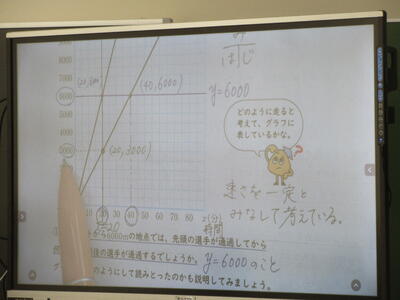 み
はじ
9000
8000
7000
6000
5000
4000
3000
(20,6000)
(40,6000)
y=6000
どのように走ると
考えて、グラフに
表しているかな。
(20,3000)
速さを一定と
みなして考えている。
10 20 30 40 50 60 70 80 x(分)
x=20
時間
から6000mの地点では、先頭の選手が通過してから
後の選手が通過するでしょうか。
y=6000のこと
のようにして読みとったのかも説明してみましょう。